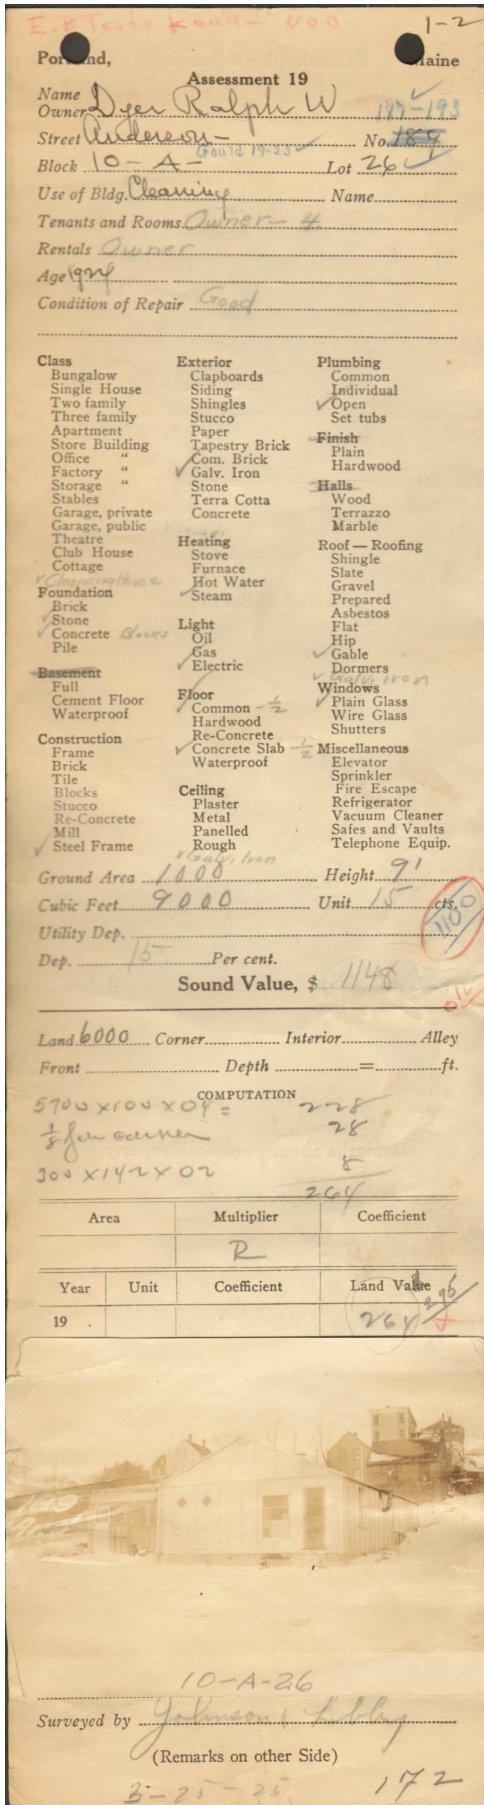 1-2
Portland, Maine
Assessment 19
Name
Owner Dyer Ralph W 187-193
Street Anderson- No. 189
Gould 19-23
Block 10-A- Lot 26
Use of Bldg. Cleaning Name
Tenants and Rooms Owner- 4
Rentals Owner
Age 1924
Condition of Repair Good
Class
Bungalow
Single House
Two family
Three family
Apartment
Store Building
Office "
Factory "
Storage "
Stables
Garage, private
Garage, public
Theatre
Club House
Cottage
✓ Cleaning House
Foundation
Brick
✓ Stone
✓ Concrete Blocks
Pile
Basement
Full
Cement Floor
Waterproof
Construction
Frame
Brick
Tile
Blocks
Stucco
Re-Concrete
Mill
✓ Steel Frame
Exterior
Clapboards
Siding
Shingles
Stucco
Paper
Tapestry Brick
Com. Brick
✓ Galv. Iron
Stone
Terra Cotta
Concrete
Heating
Stove
Furnace
Hot Water
✓ Steam
Light
Oil
Gas
✓ Electric
Floor
✓ Common - ½
Hardwood
Re-Concrete
✓ Concrete Slab - ½
Waterproof
Ceiling
Plaster
Metal
Panelled
Rough
✓ Galv. Iron
Plumbing
Common
Individual
✓ Open
Set tubs
Finish
Plain
Hardwood
Halls
Wood
Terrazzo
Marble
Roof — Roofing
Shingle
Slate
Gravel
Prepared
Asbestos
Flat
Hip
✓ Gable
Dormers
✓ Galv. Iron
Windows
✓ Plain Glass
Wire Glass
Shutters
Miscellaneous
Elevator
Sprinkler
Fire Escape
Refrigerator
Vacuum Cleaner
Safes and Vaults
Telephone Equip.
Ground Area 1000 Height 9'
Cubic Feet 9000 Unit 15 cts.
1100
Utility Dep.
Dep. 15 Per cent.
Sound Value, $ 1148
Land 6000 Corner Interior Alley
Front Depth = ft.
COMPUTATION
5700 x 100 x 04 = 228
⅛ for corner 28
300 x 142 x 02 8
264
Area Multiplier Coefficient
R
Year Unit Coefficient Land Value
19 . 264
10-A-26
Surveyed by Johnson & Libby
(Remarks on other Side)
3-25-25 172